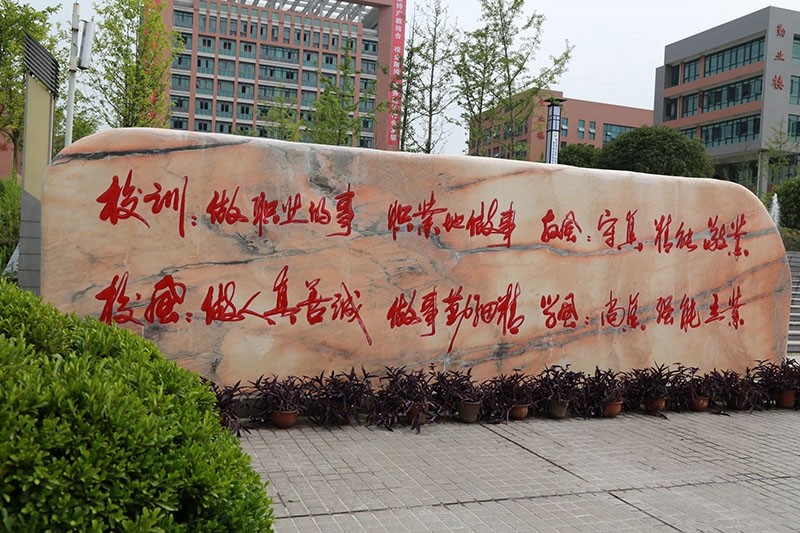 勤业楼
校训：做职业的事 职業地做事 教风：守真 精能 敬業
校风：做人真善诚 做事勤细精 学风：尚真 强能 立業